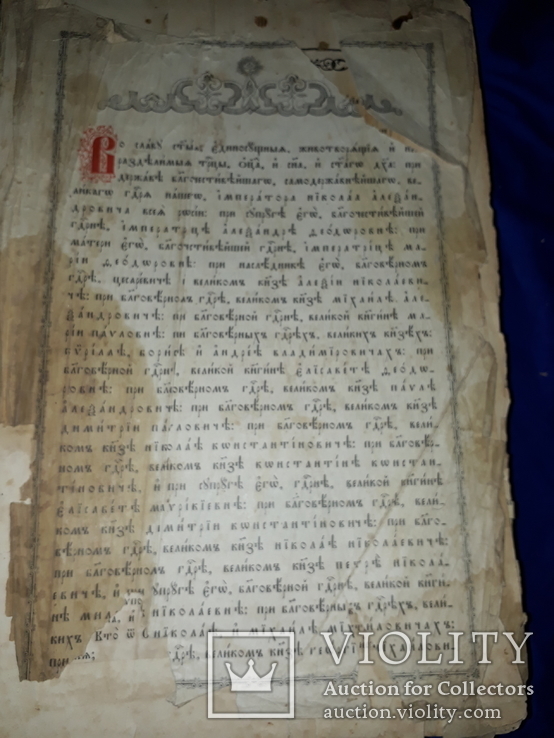 Во славу ст҃ыѧ є҆диносꙋ́щныѧ, животворѧ́щїѧ и҆ не
раздѣли́мыѧ трⷪ҇цы, ѻ҆ц҃а̀, и҆ сн҃а, и҆ ст҃а́гѡ дх҃а: при
держа́вѣ бл҃гочести́вѣйшагѡ, самодержа́внѣйшагѡ, ве-
ли́кагѡ гдⷭ҇рѧ на́шегѡ, і҆мпера́тора нїкола́ѧ а҆леѯа́н-
дровича всеѧ̀ рѡссі́и: при сꙋпрꙋ́гѣ є҆гѡ̀, бл҃гочести́вѣйшей
гдⷭ҇рнѣ, і҆мператри́цѣ а҆леѯа́ндрѣ ѳео́дѡровнѣ: при
ма́тери є҆гѡ̀, бл҃гочести́вѣйшей гдⷭ҇рнѣ, і҆мператри́цѣ ма-
рі́и ѳео́дѡровнѣ: при наслѣ́дникѣ є҆гѡ̀, бл҃говѣ́рномъ
гдⷭ҇рѣ, цесаре́вичѣ и҆ вели́комъ кнѧ́зѣ а҆леѯі́и нїкола́еви-
чѣ: при бл҃говѣ́рномъ гдⷭ҇рѣ, вели́комъ кнѧ́зѣ мїхаи́лѣ а҆ле-
ѯа́ндровичѣ: при бл҃говѣ́рной гдⷭ҇рнѣ, вели́кой кнѧги́нѣ ма-
рі́и па́ѵловнѣ: при бл҃говѣ́рныхъ гдⷭ҇рѣхъ, вели́кихъ кнѧзѣ́хъ:
кѷрі́ллѣ, бори́сѣ и҆ а҆ндре́ѣ влади́мїровичахъ: при
бл҃говѣ́рной гдⷭ҇рнѣ, вели́кой кнѧги́нѣ є҆лїсаве́тѣ ѳео́дѡ-
ровнѣ: при бл҃говѣ́рномъ гдⷭ҇рѣ, вели́комъ кнѧ́зѣ па́ѵлѣ
а҆леѯа́ндровичѣ: при бл҃говѣ́рномъ гдⷭ҇рѣ, вели́комъ кнѧ́зѣ
дими́трїи па́ѵловичѣ: при бл҃говѣ́рномъ гдⷭ҇рѣ, вели-
комъ кнѧ́зѣ нїкола́ѣ кѡнстанті́новичѣ: при бл҃говѣ́р-
номъ гдⷭ҇рѣ, вели́комъ кнѧ́зѣ кѡнстанті́нѣ кѡнстан-
ті́новичѣ, и҆ при сꙋпрꙋ́гѣ є҆гѡ̀, гдⷭ҇рнѣ, вели́кой кнѧги́нѣ
є҆лїсаве́тѣ маѵрі́кїевнѣ: при бл҃говѣ́рномъ гдⷭ҇рѣ, вели-
комъ кнѧ́зѣ дими́трїи кѡнстанті́новичѣ: при бл҃го-
вѣ́рномъ гдⷭ҇рѣ, вели́комъ кнѧ́зѣ нїкола́ѣ нїкола́евичѣ:
при бл҃говѣ́рномъ гдⷭ҇рѣ, вели́комъ кнѧ́зѣ петрѣ̀ нїкола-
евичѣ, и҆ при сꙋпрꙋ́гѣ є҆гѡ̀, бл҃говѣ́рной гдⷭ҇рнѣ, вели́кой кнѧги́-
нѣ нїкола́евнѣ: при бл҃говѣ́рныхъ гдⷭ҇рѣхъ, вели-
кихъ нїкола́ѣ и҆ мїхаи́лѣ мїха́йловичахъ:
при гдⷭ҇рѣ, вели́комъ кнѧ́зѣ геѡ́ргїи мїха́йлови-
VIOLITY
Auction for Collectors
auction.violity.com